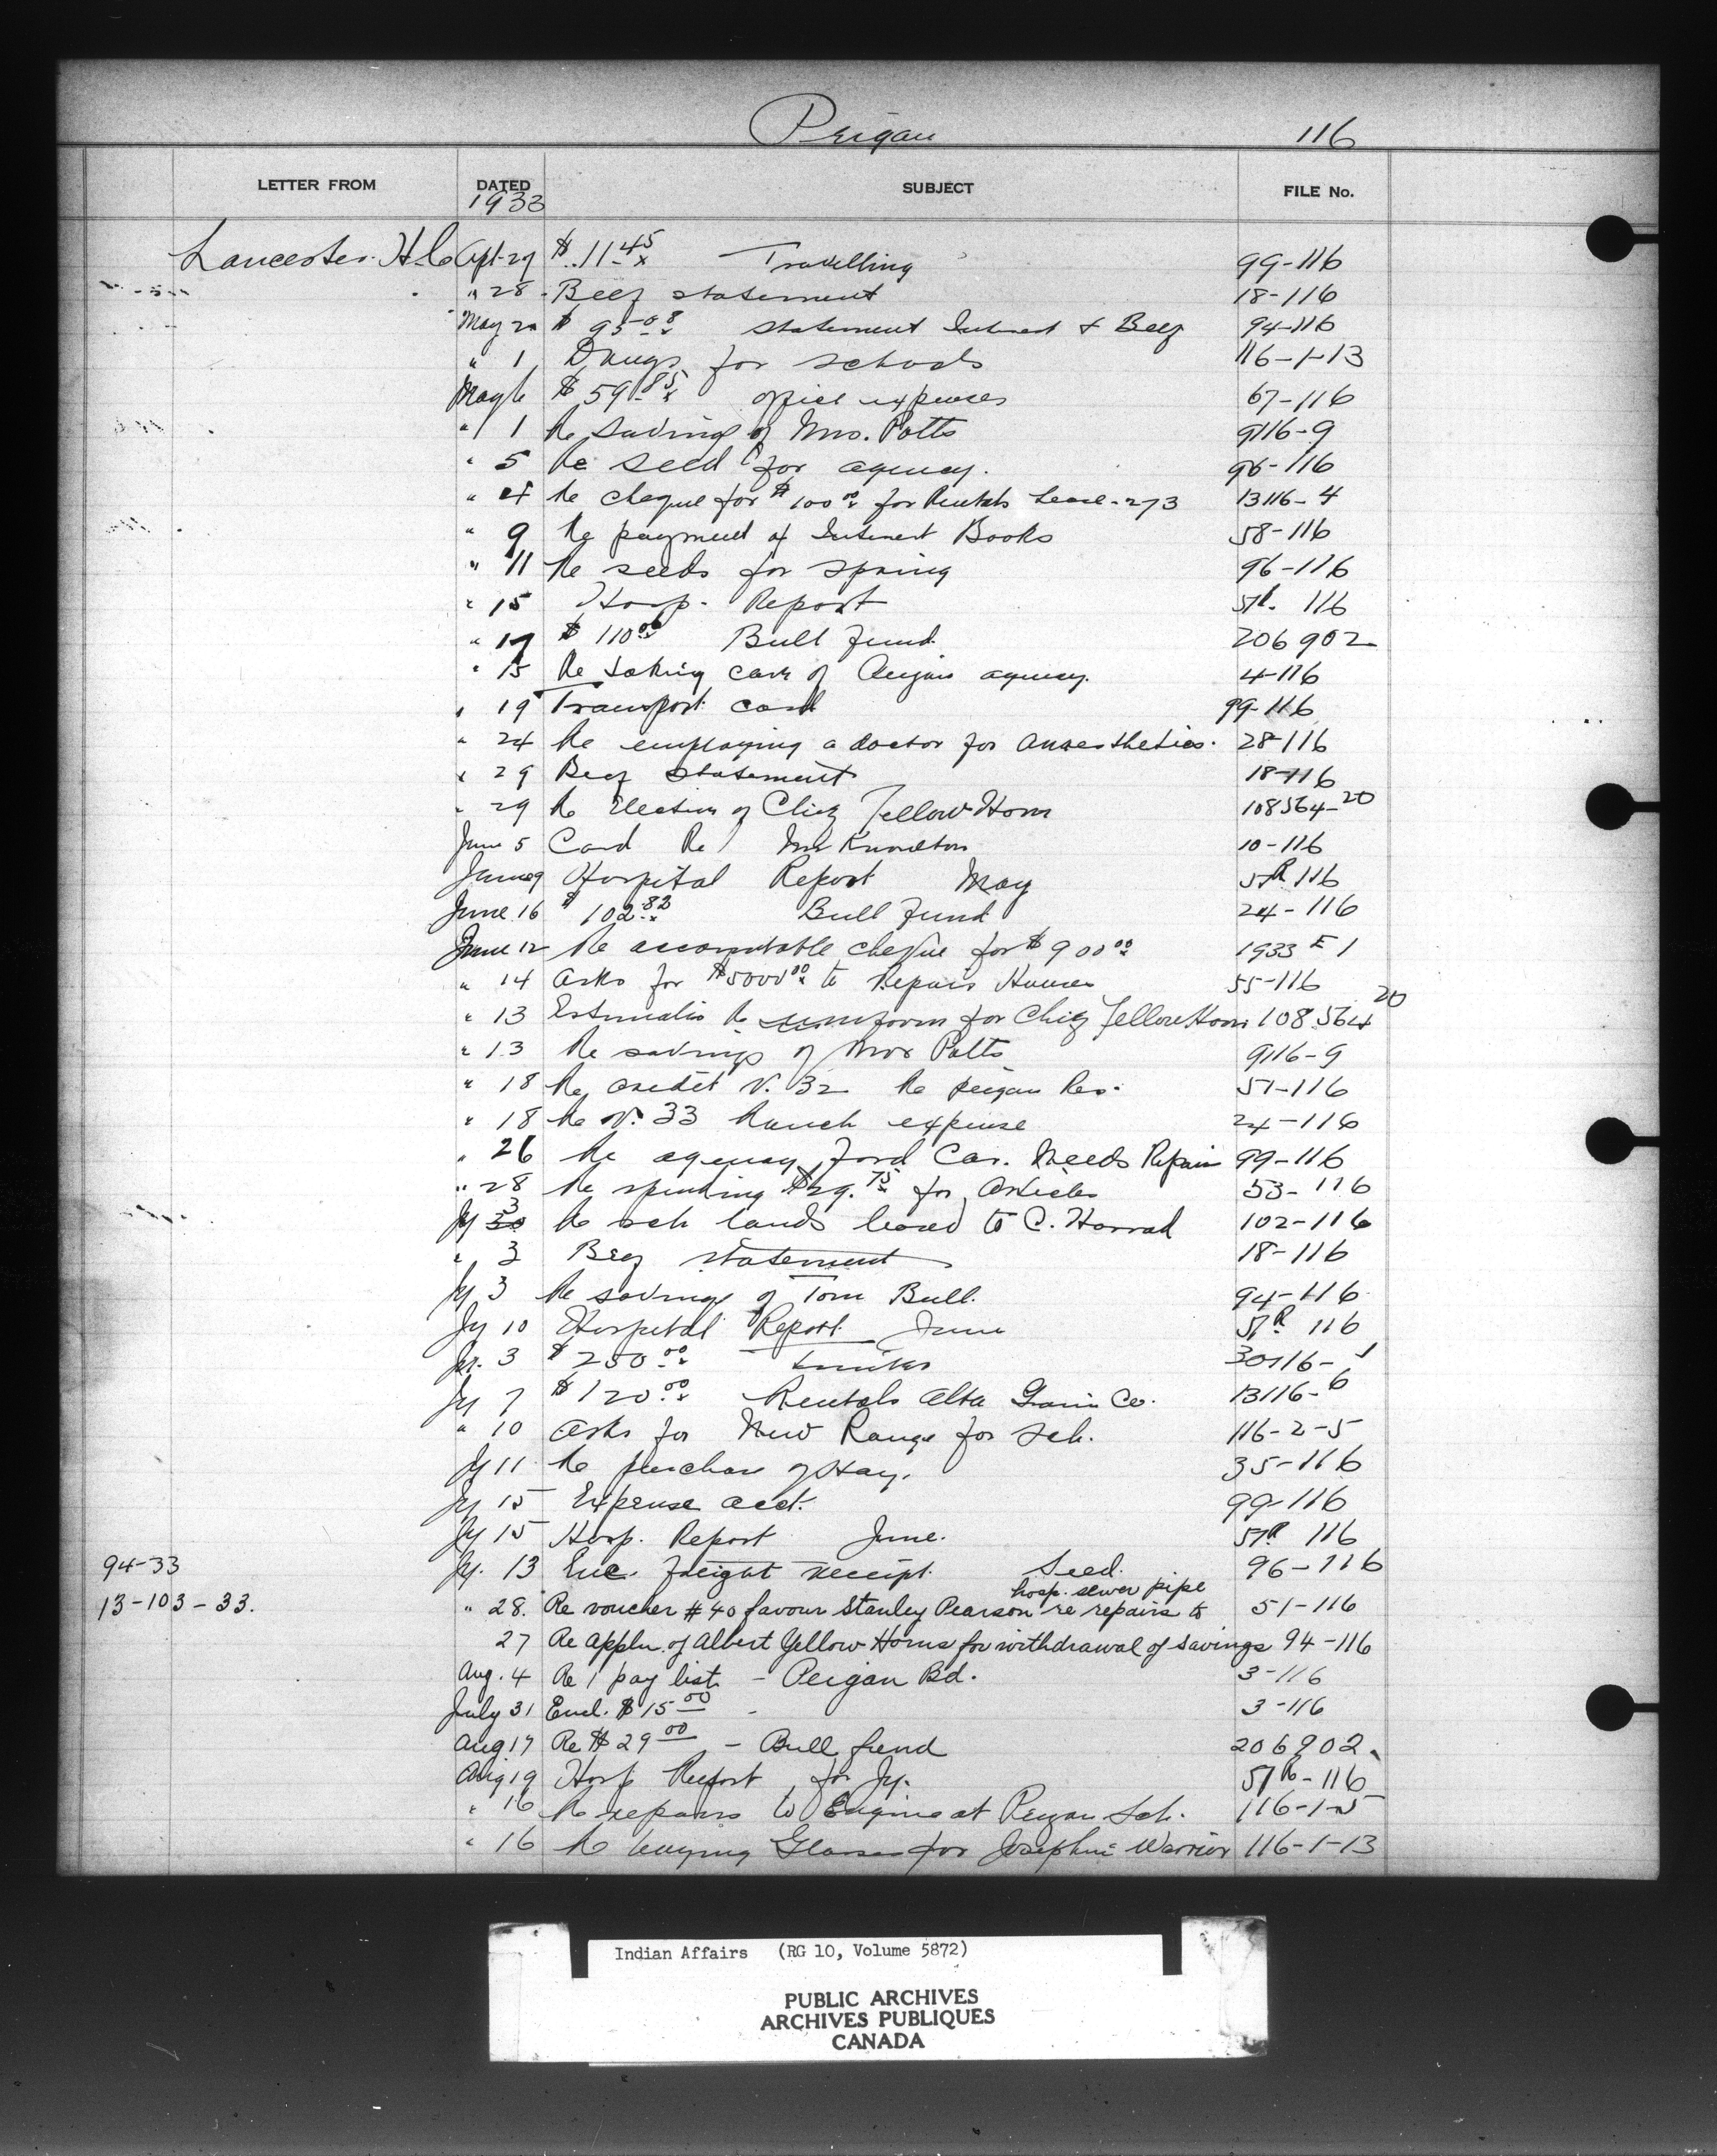 Peigan 116
LETTER FROM DATED SUBJECT FILE No.
1933
Lancester H.C. Apl. 27 $11.45 Travelling 99-116
" 28 Beef statement 18-116
May 2 $95.08 statement Interest & Beef 94-116
" 1 Drugs for schools 116-1-13
May 6 $59.85 office expenses 67-116
" 1 Re saving of Mrs. Potts 9116-9
" 5 Re seed for agency. 96-116
" 4 Re cheque for $100.00 for Rentals Lease-273 13116-4
" 9 Re payment of Interest Books 58-116
" 11 Re seeds for spring 96-116
" 15 Hosp. Report 51R. 116
" 17 $110.00 Bull Fund. 206902
" 15 Re taking care of Peigan agency. 4-116
" 19 Transport card 99-116
" 24 Re employing a doctor for anaesthetics. 28-116
" 29 Beef statement 18-116
" 29 Re Election of Chief Yellow Horn 108564-20
June 5 Card Re Mr Knowlton 10-116
June 9 Hospital Report May 51R 116
June 16 $102.82 Bull Fund 24-116
June 12 Re accountable cheque for $900.00 1933 E 1
" 14 asks for $5000.00 to Repair Houses 55-116
" 13 Estimates Re uniform for Chief Yellow Horn 108564 20
" 13 Re savings of Mrs Potts 9116-9
" 18 Re credit V. 32 Re peigan Res. 51-116
" 18 Re V. 33 Ranch expense 24-116
" 26 Re agency Ford Car. Needs Repair 99-116
" 28 Re spending $29.75 for articles 53-116
Jy 3 30 Re sch lands leased to C. Harrad 102-116
" 3 Beef statement 18-116
Jy 3 Re savings of Tom Bull. 94-116
Jy 10 Hospital Report June 51R 116
Jy. 3 $250.00 30116-1
Jy 7 $120.00 Rentals Alta Grain Co. 13116-6
" 10 asks for New Range for Sch. 116-2-5
Jy 11 Re purchase of Hay. 35-116
Jy 15 Expense acct. 99-116
Jy 15 Hosp. Report June. 51R 116
94-33 Jy. 13 Enc. freight receipt. Seed. 96-116
hosp. sewer pipe
13-103-33. " 28. Re voucher #40 favour Stanley Pearson re repairs to 51-116
27 Re appln. of Albert Yellow Horns for withdrawal of savings 94-116
Aug. 4 Re 1 pay list - Peigan Bd. 3-116
July 31 Encl. $15.00 - 3-116
Aug 17 Re $29.00 - Bull fund 206902
Aug 19 Hosp Report for Jy. 51R-116
" 16 Re repairs to Engine at Peigan Sch. 116-1-5
" 16 Re buying Glasses for Josephine Warrior 116-1-13
Indian Affairs (RG 10, Volume 5872)
PUBLIC ARCHIVES
ARCHIVES PUBLIQUES
CANADA